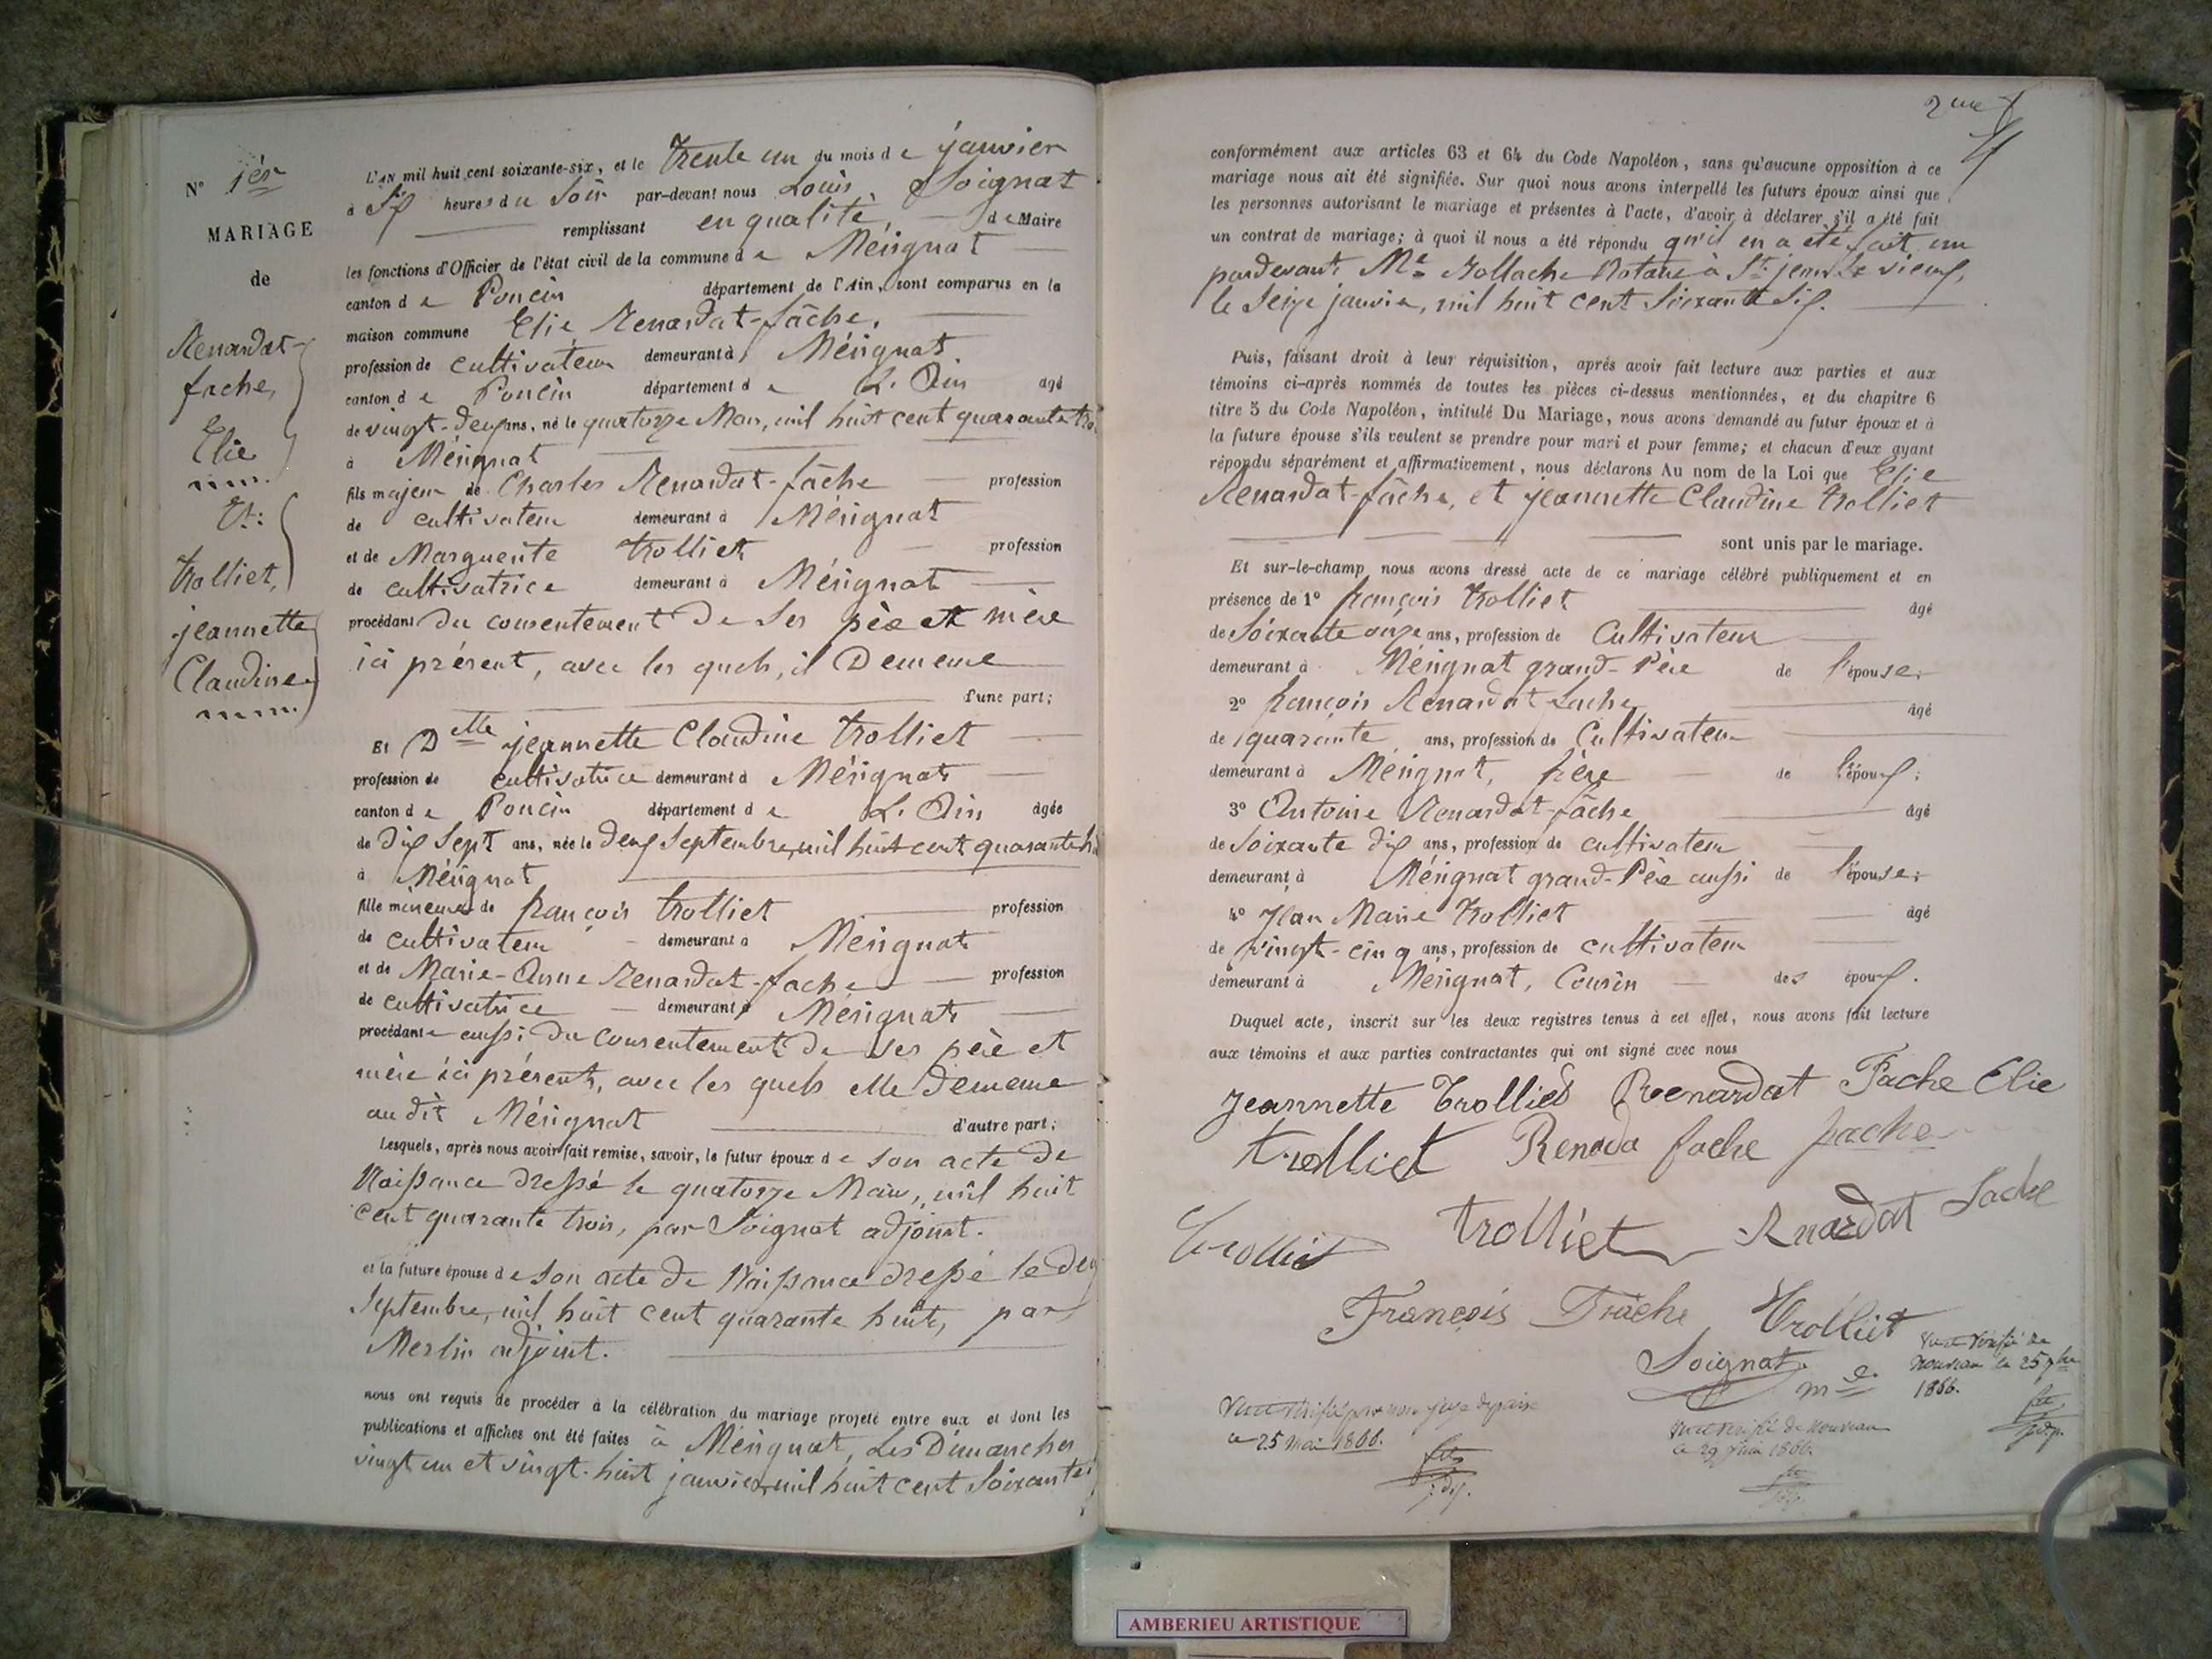 N° 1er
MARIAGE
de
Renardat-
fache,
Elie
Et:
trolliet,
jeannette
Claudine
L'AN mil huit cent soixante-six, et le trente un du mois de janvier
à Six heures du Soir par-devant nous Louis, Soignat
remplissant en qualité, de Maire
les fonctions d'Officier de l'état civil de la commune de Mérignat
canton de Poncin département de l'Ain, sont comparus en la
maison commune Elie Renardat-fâche,
profession de cultivateur demeurant à Mérignat
canton de Poncin département de L'Ain âgé
de vingt-deux ans, né le quatorze Mars, mil huit cent quarante
à Mérignat
fils majeur de Charles Renardat-fâche profession
de cultivateur demeurant à Mérignat
et de Marguerite trolliet profession
de cultivatrice demeurant à Mérignat
procédant du consentement de Ses père et mère
ici présent, avec les quels, il Demeure
d'une part;
Et Delle jeannette Claudine trolliet
profession de cultivatrice demeurant à Mérignat
canton de Poncin département de L'Ain âgée
de dix Sept ans, née le deux Septembre, mil huit cent quarante
à Mérignat
fille mineure de françois trolliet profession
de cultivateur demeurant à Mérignat
et de Marie-Anne Renardat-fache profession
de cultivatrice demeurant à Mérignat
procédante aussi du consentement de ses père et
mère ici présents, avec les quels elle demeure
au dit Mérignat d'autre part;
Lesquels, après nous avoir fait remise, savoir, le futur époux de son acte de
Naissance dressé le quatorze Mars, mil huit
cent quarante trois, par Soignat adjoint.
et la future épouse de son acte de Naissance dressé le deux
Septembre, mil huit cent quarante huit, par
Merlin adjoint.
nous ont requis de procéder à la célébration du mariage projeté entre eux et dont les
publications et affiches ont été faites à Mérignat, Les Dimanches
vingt un et vingt-huit janvier, mil huit cent Soixante
2me
conformément aux articles 63 et 64 du Code Napoléon, sans qu'aucune opposition à ce
mariage nous ait été signifiée. Sur quoi nous avons interpellé les futurs époux ainsi que
les personnes autorisant le mariage et présentes à l'acte, d'avoir à déclarer s'il a été fait
un contrat de mariage; à quoi il nous a été répondu qu'il en a été fait un
pardevant Me Notaire à St. jean Le vieux,
le Seize janvier, mil huit cent Soixante Six.
Puis, faisant droit à leur réquisition, après avoir fait lecture aux parties et aux
témoins ci-après nommés de toutes les pièces ci-dessus mentionnées, et du chapitre 6
titre 5 du Code Napoléon, intitulé Du Mariage, nous avons demandé au futur époux et à
la future épouse s'ils veulent se prendre pour mari et pour femme; et chacun d'eux ayant
répondu séparément et affirmativement, nous déclarons Au nom de la Loi que Elie
Renardat-fâche, et jeannette Claudine trolliet
sont unis par le mariage.
Et sur-le-champ nous avons dressé acte de ce mariage célébré publiquement et en
présence de 1° françois trolliet âgé
de Soixante onze ans, profession de Cultivateur
demeurant à Mérignat grand-Père de l'épouse;
2° françois Renardat-fache âgé
de quarante ans, profession de Cultivateur
demeurant à Mérignat, frère de l'époux;
3° Antoine Renardat-fâche âgé
de Soixante dix ans, profession de cultivateur
demeurant à Mérignat grand-Père aussi de l'épouse;
4° Jean Marie trolliet âgé
de vingt-cinq ans, profession de cultivateur
demeurant à Mérignat, Cousin des époux.
Duquel acte, inscrit sur les deux registres tenus à cet effet, nous avons fait lecture
aux témoins et aux parties contractantes qui ont signé avec nous
Jeannette Trolliet Renardat Fache Elie
trolliet Renada fache fache
trolliet trolliet Renardat fache
François Frâche Trolliet
Soignat
me
Vu et vérifié de
nouveau le 25 7bre
1866.
Vu et vérifié par nous juge de paix
le 25 Mai 1866.
Vu et vérifié de nouveau
le 29 juin 1866.
AMBERIEU ARTISTIQUE